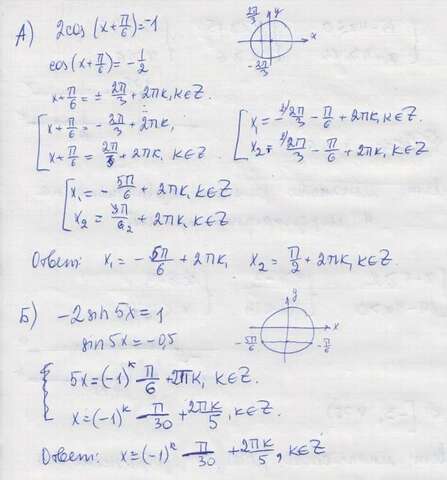 А) 2cos(x+π/6)=-1
cos(x+π/6)=-1/2
x+π/6=±2π/3+2πk, k∈Z.
x+π/6=-2π/3+2πk,
x+π/6=2π/3+2πk, k∈Z.
x₁=-2π/3-π/6+2πk, k∈Z.
x₂=2π/3-π/6+2πk, k∈Z
x₁=-5π/6+2πk, k∈Z
x₂=3π/6+2πk, k∈Z
Ответ: x₁=-5π/6+2πk, x₂=π/2+2πk, k∈Z.
2π/3
y
x
-2π/3
Б) -2sin5x=1
sin5x=-0,5
5x=(-1)ᵏ-π/6+2πk, k∈Z.
x=(-1)ᵏ-π/30+2πk/5, k∈Z.
Ответ: x=(-1)ᵏ-π/30+2πk/5, k∈Z
y
x
-5π/6
-π/6